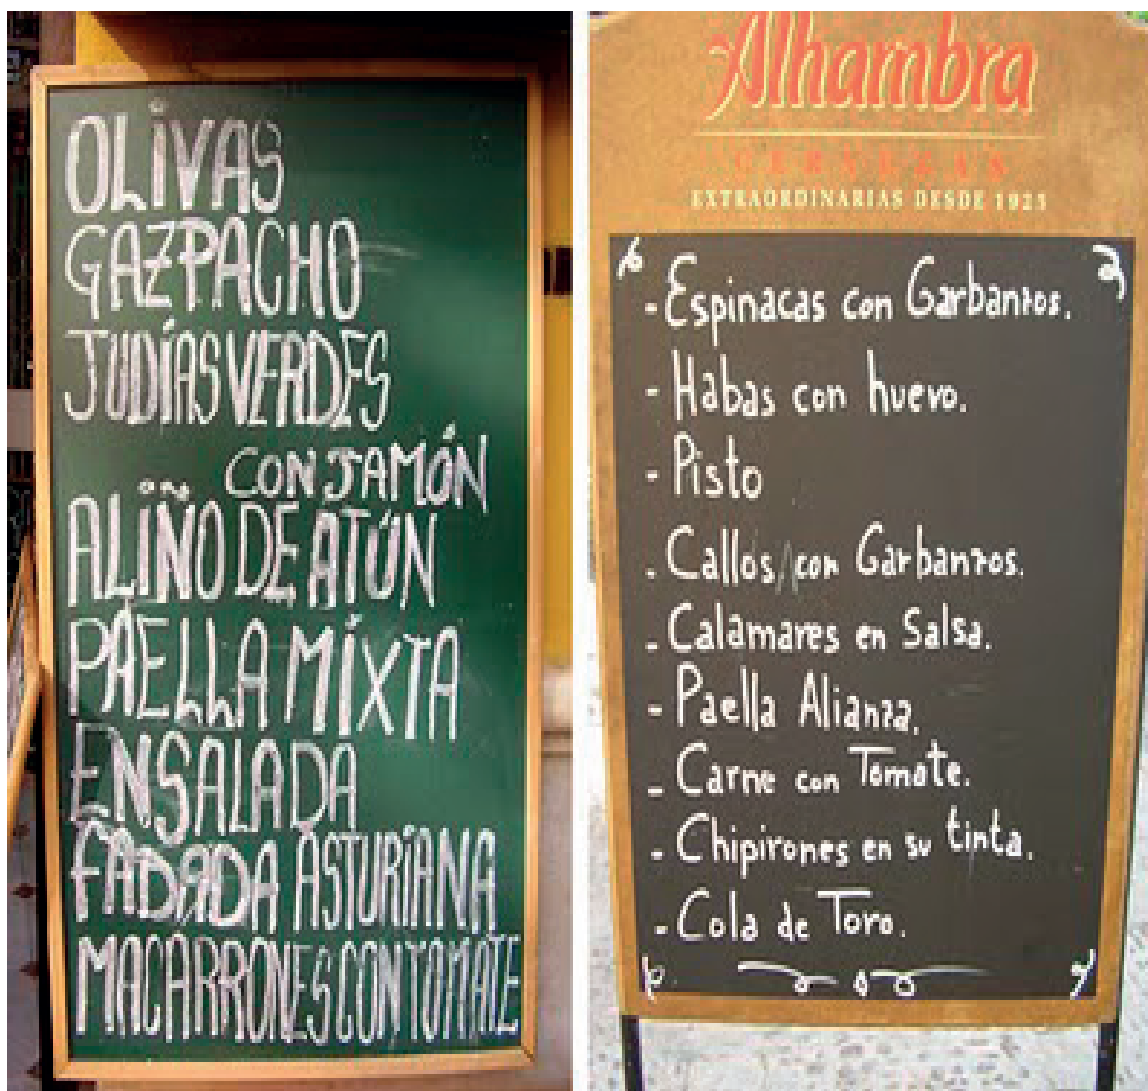 OLIVAS
GAZPACHO
JUDÍAS VERDES
CON JAMÓN
ALIÑO DE ATÚN
PAELLA MIXTA
ENSALADA
FABADA ASTURIANA
MACARRONES CON TOMATE
Alhambra
CERVEZAS
EXTRAORDINARIAS DESDE 1925
- Espinacas con Garbanzos.
- Habas con huevo.
- Pisto
- Callos con Garbanzos.
- Calamares en Salsa.
- Paella Alianza.
- Carne con Tomate.
- Chipirones en su tinta.
- Cola de Toro.